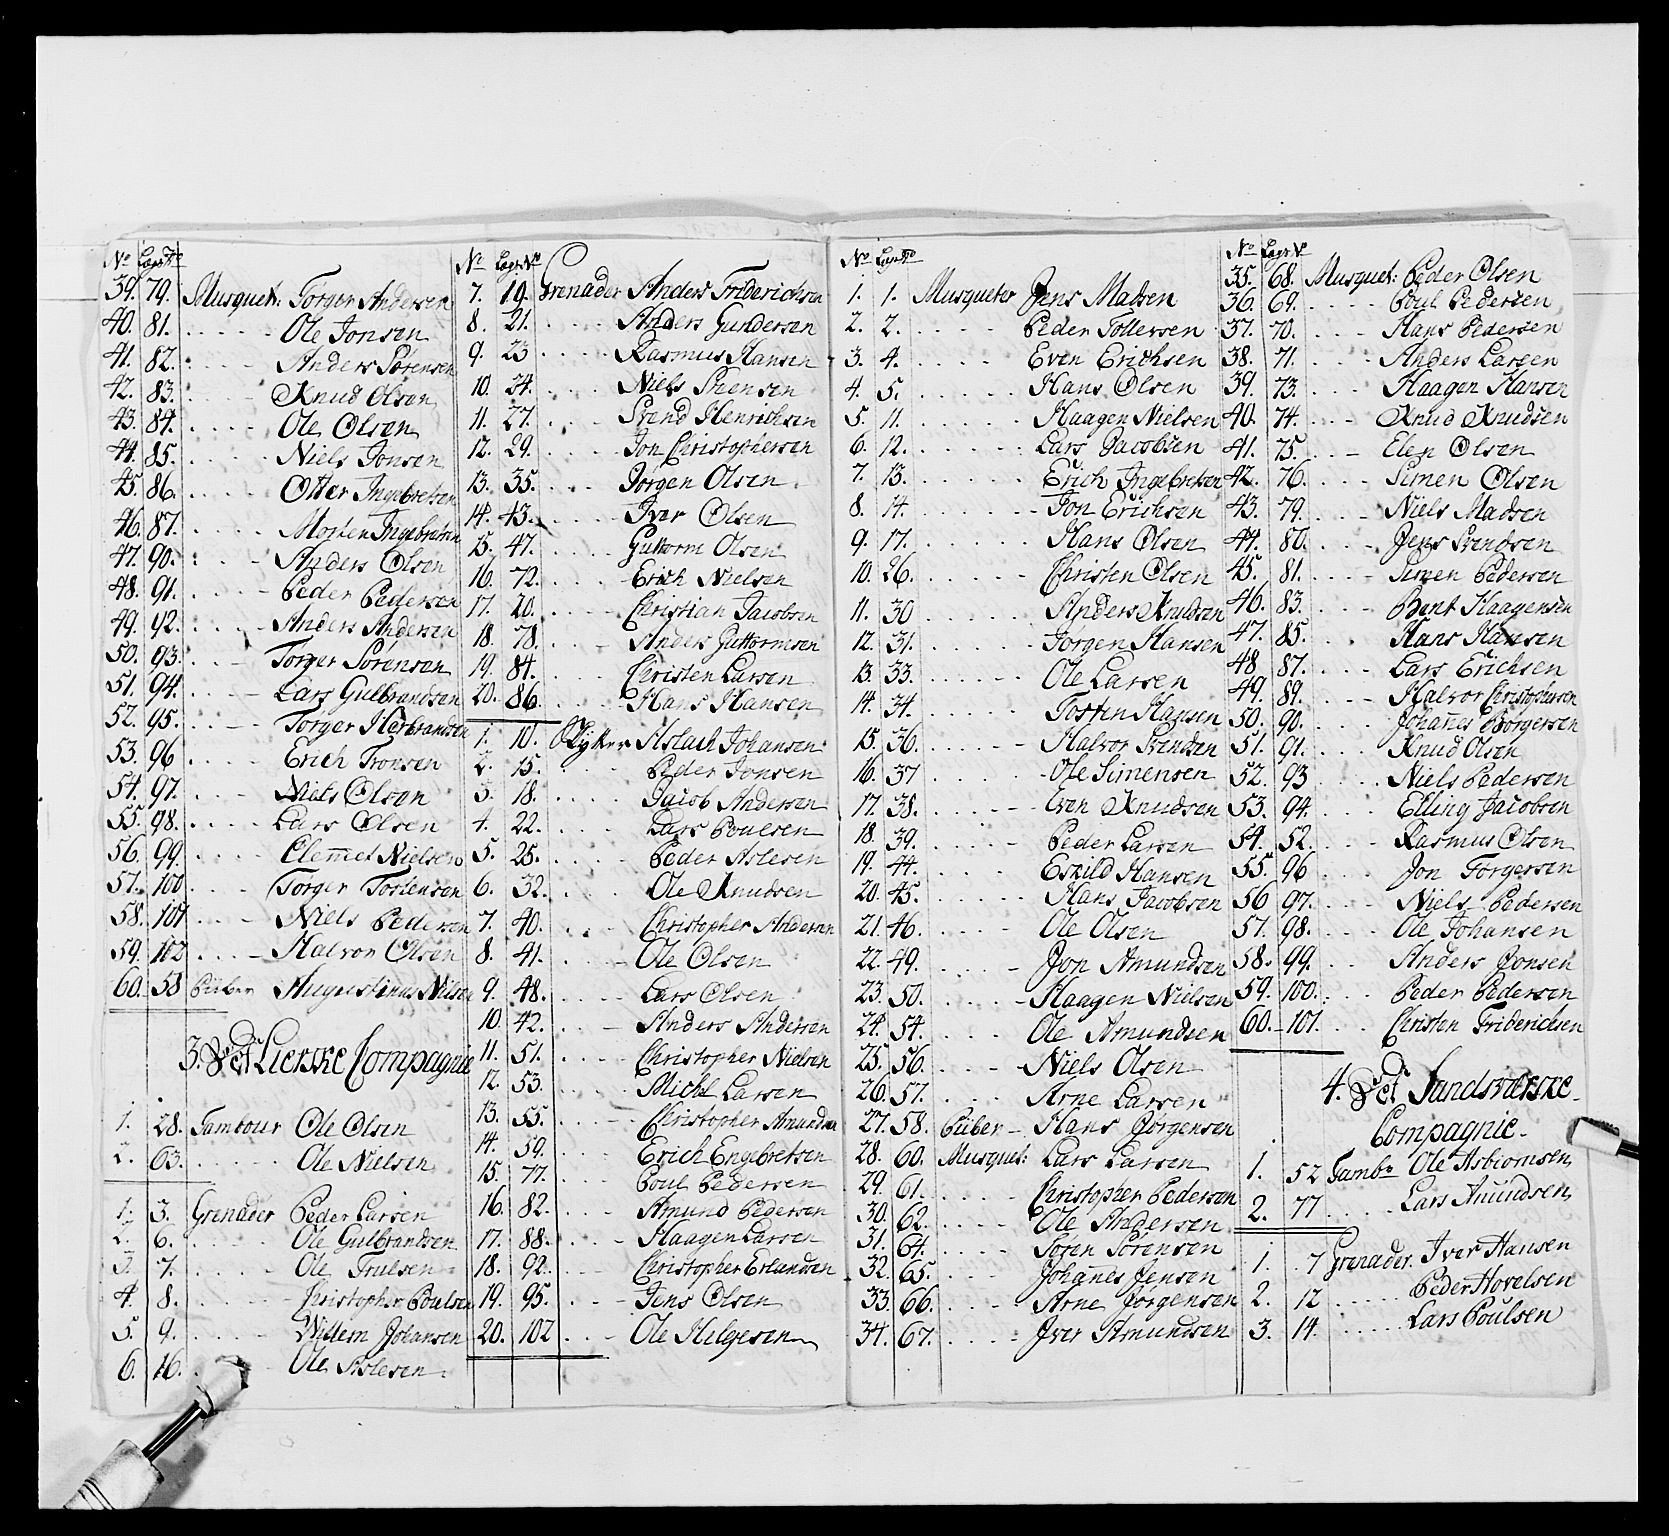 No Lægs No
39. 79. Musquet: Torger Andersen
40. 81. Ole Jonsen
41. 82. Anders Sørensen
42. 83. Knud Olsen
43. 84. Ole Olsen
44. 85. Niels Jonsen
45. 86. Otter Ingebretsen
46. 87. Morten Ingebretsen
47. 90. Anders Olsen
48. 91. Peder Pedersen
49. 92. Anders Andersen
50. 93. Torger Sørensen
51. 94. Lars Gulbrandsen
52. 95. Torger Herbrandsen
53. 96 Erich Tronsen
54. 97. Niels Olsen
55. 98. Lars Olsen
56. 99. Clemmet Nielsen
57. 100 Torger Tostensen
58. 101 Niels Pedersen
59. 102 Halvor Olsen
60. 58 Piiber Augustinus Nilsen
3. Det Lierske Compagnie
1. 28. Tambour Ole Olsen
2. 63. Ole Nielsen
1. 3. Grenader Peder Larsen
2. 6. Ole Gulbrandsen
3. 7. Ole Trulsen
4. 8. Christopher Poulsen
5. 9. Willem Johansen
6. 16. Ole Aslesen
No Lægs No
7. 19. Grenader Anders Friderichsen
8. 21. Anders Gundersen
9. 23 Rasmus Hansen
10. 24. Niels Steensen
11. 27. Svend Henrichsen
12. 29. Jon Christophersen
13. 35. Jørgen Olsen
14. 43. Iver Olsen
15. 47. Guttorm Olsen
16. 72. Erich Nielsen
17. 20. Christian Jacobsen
18. 78. Anders Guttormsen
19. 84. Christen Larsen
20. 86. Hans Hansen
1. 10. Skytter Aslach Johansen
2. 15. Peder Jonsen
3. 18. Jacob Andersen
4. 22. Lars Poulsen
5. 25. Peder Aslesen
6. 32. Ole Knudsen
7. 40. Christopher Andersen
8. 41. Ole Olsen
9. 48. Lars Olsen
10. 42. Anders Andersen
11. 51. Christopher Nielsen
12. 53. Michl Larsen
13. 55. Christopher Amundsen
14. 59. Erich Engebretsen
15. 77. Poul Pedersen
16. 82. Amund Pedersen
17. 88. Haagen Larsen
18. 92. Christopher Erlandsen
19. 95. Jens Olsen
20. 102 Ole Helgesen
No Lægs No
1. 1. Musqueter Jens Madsen
2. 2. Peder Tollersen
3. 4. Even Erichsen
4. 5. Hans Olsen
5. 11. Haagen Nielsen
6. 12. Lars Jacobsen
7. 13. Erich Ingebretsen
8. 14. Jon Erichsen
9. 17. Hans Olsen
10. 26. Christen Olsen
11. 30 Anders Knudsen
12. 31. Jørgen Hansen
13. 33. Ole Larsen
14. 34. Tosten Hansen
15. 36. Halvor Svendsen
16. 37 Ole Simensen
17. 38. Even Knudsen
18. 39. Peder Larsen
19. 44. Eskild Hansen
20. 45. Hans Jacobsen
21. 46. Ole Olsen
22. 49. Jon Amundsen
23. 50. Haagen Nielsen
24. 54. Ole Amundsen
25. 56. Niels Olsen
26. 57. Arne Larsen
27. 58. Piiber Hans Jørgensen
28. 60. Musquet: Lars Larsen
29. 61. Christopher Pedersen
30. 62. Ole Andersen
31. 64. Søren Sørensen
32. 65. Johanes Jensen
33. 66. Arne Jørgensen
34. 67. Iver Amundsen
No Lægs No
35. 68. Musquet: Peder Olsen
36. 69. Poul Pedersen
37. 70. Hans Pedersen
38. 71. Anders Larsen
39. 73. Haagen Hansen
40. 74. Knud Knudsen
41. 75. Elen Olsen
42. 76. Simen Olsen
43. 79. Niels Madsen
44. 80. Jens Svendsen
45. 81. Simen Pedersen
46. 83. Bent Haagensen
47. 85. Hans Hansen
48. 87. Lars Erichsen
49. 89. Halvor Christophersen
50. 90. Johanes Børgersen
51. 91. Knud Olsen
52. 93 Niels Pedersen
53. 94. Elling Jacobsen
54. 52. Rasmus Olsen
55. 96 Jon Torgersen
56 97. Niels Pedersen
57. 98. Ole Johansen
58. 99. Anders Jonsen
59. 100. Peder Pedersen
60. 101. Christen Friderichsen
4. Det Sandsværske
Compagnie
1. 52 Tambr Ole Asbiørnsen
2. 77 Lars Amundsen
1. 7 Grenader Iver Hansen
2. 12 Peder Hovelsen
3. 14. Lars Poulsen